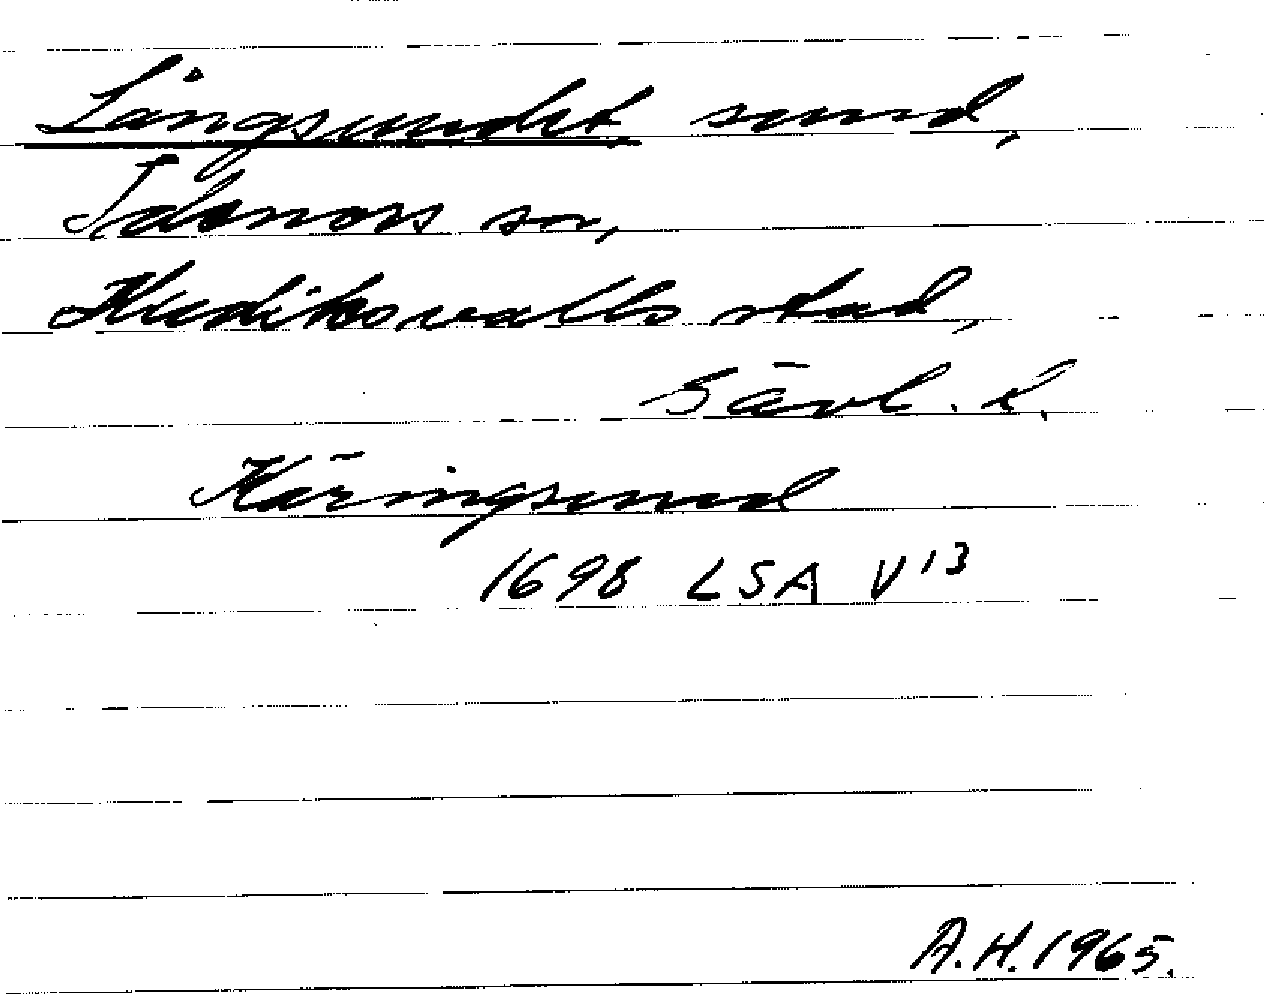 Långsundet, sund,
Idenors sn,
Hudiksvalls stad,
Gävl. l.
Käringsund
1698 LSA V 13
A.H. 1965.